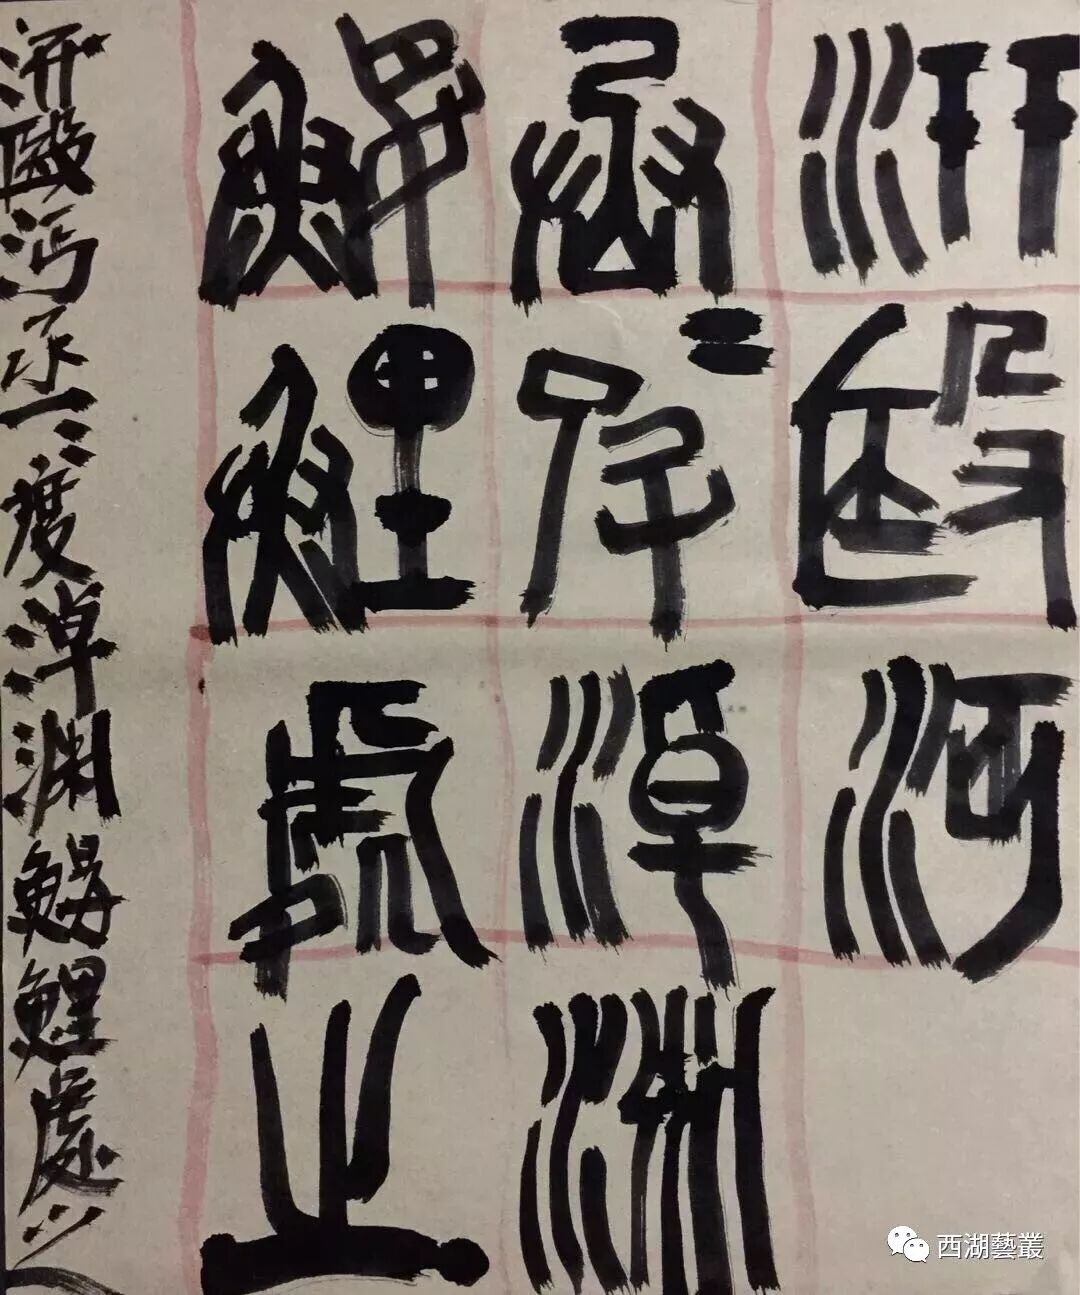 汧殹沔
丞〻皮淖淵
鰋鯉處之
汧殹沔丞〻淖淵鰋鯉處之
西湖藝叢